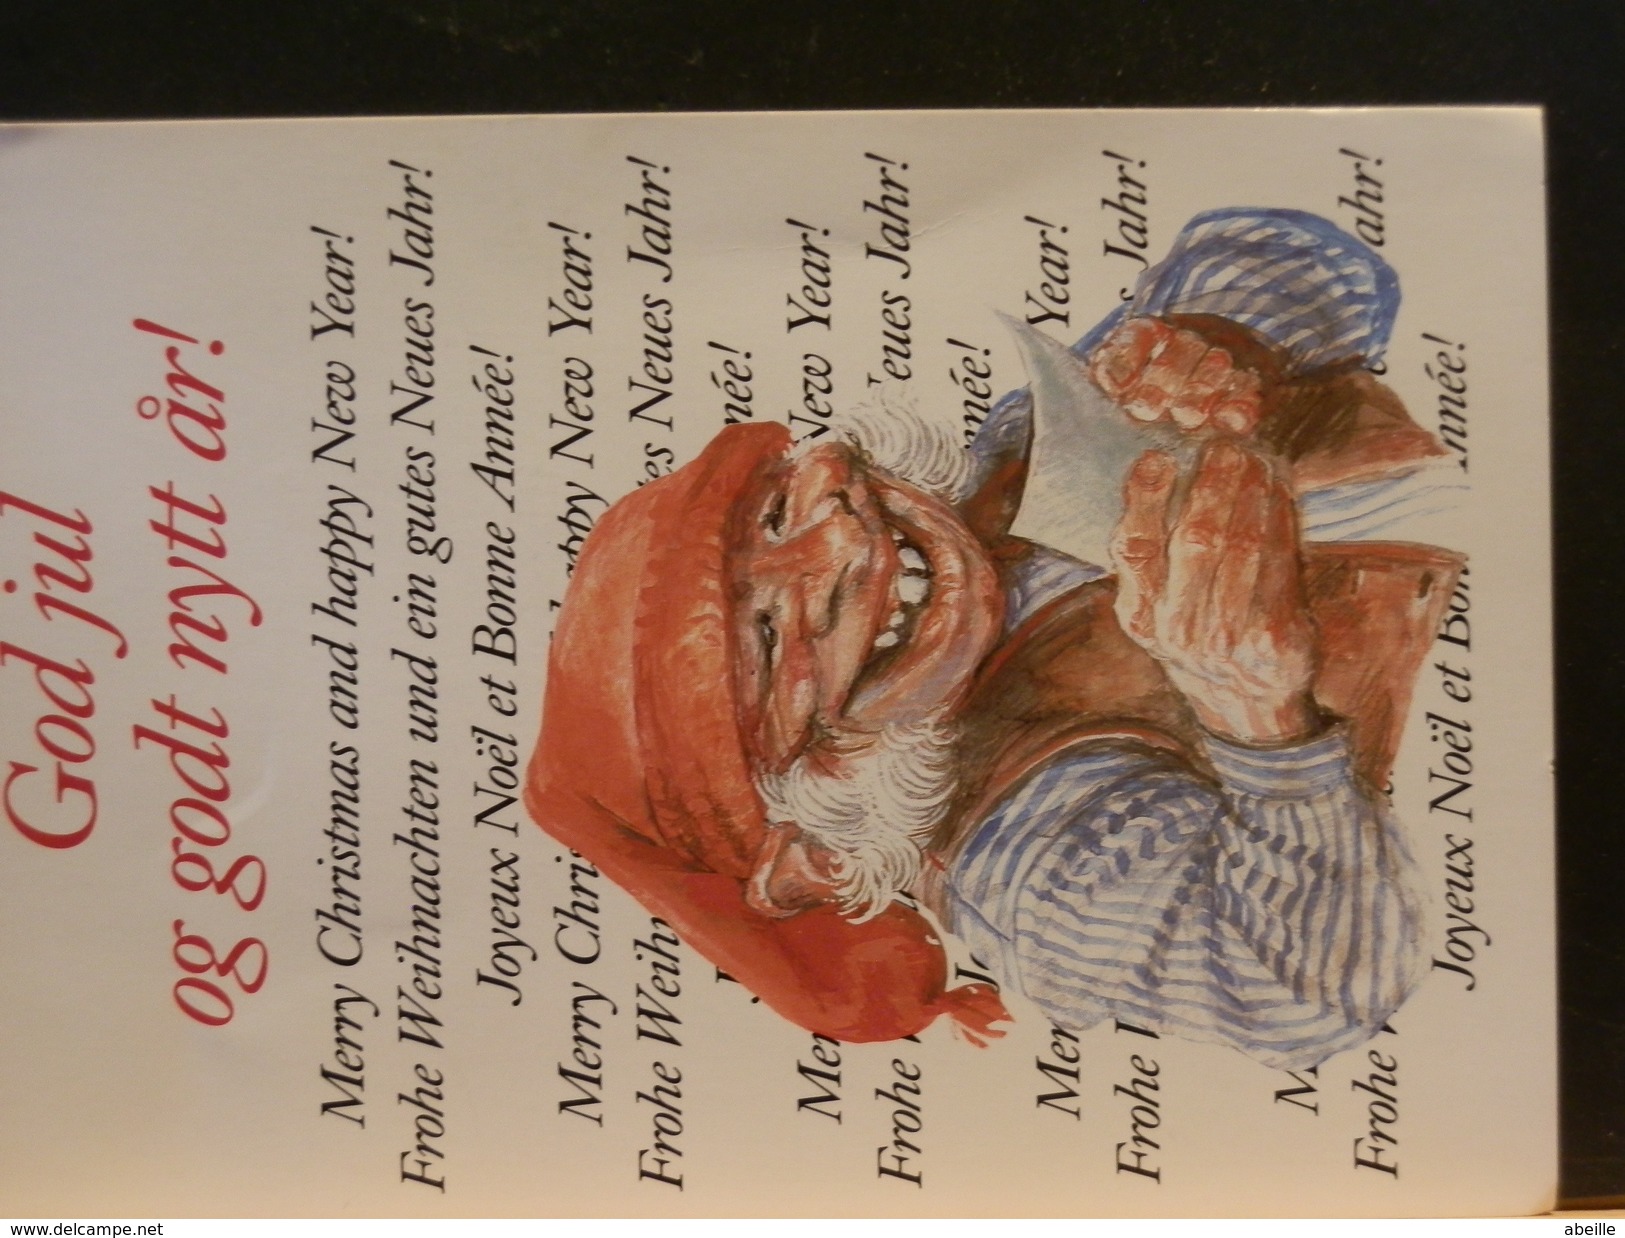 God jul
og godt nytt år!
Merry Christmas and happy New Year!
Frohe Weihnachten und ein gutes Neues Jahr!
Joyeux Noël et Bonne Année!
Merry Chris happy New Year!
Frohe Weihn es Neues Jahr!
née!
Mer New Year!
Frohe Neues Jahr!
J nnée!
Mer Year!
Frohe Jahr!
M
Frohe W ahr!
Joyeux Noël et Bon Année!
www.delcampe.net
abeille